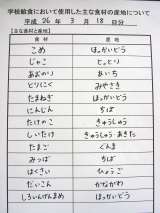 学校給食において使用した主な食材の産地について
平成 26 年 3 月 18 日分
【主な食材と産地】
食材 産地
こめ ほっかいどう
じゃこ
あおのり あいち
とりにく みやざき
たまねぎ ほっかいどう
にんじん ちば
たけのこ きゅうしゅう
しいたけ きゅうしゅう
たまご ぐんま
みつば ちば
はくさい ひょうご
だいこん かながわ
しろいんげんまめ ほっかいどう